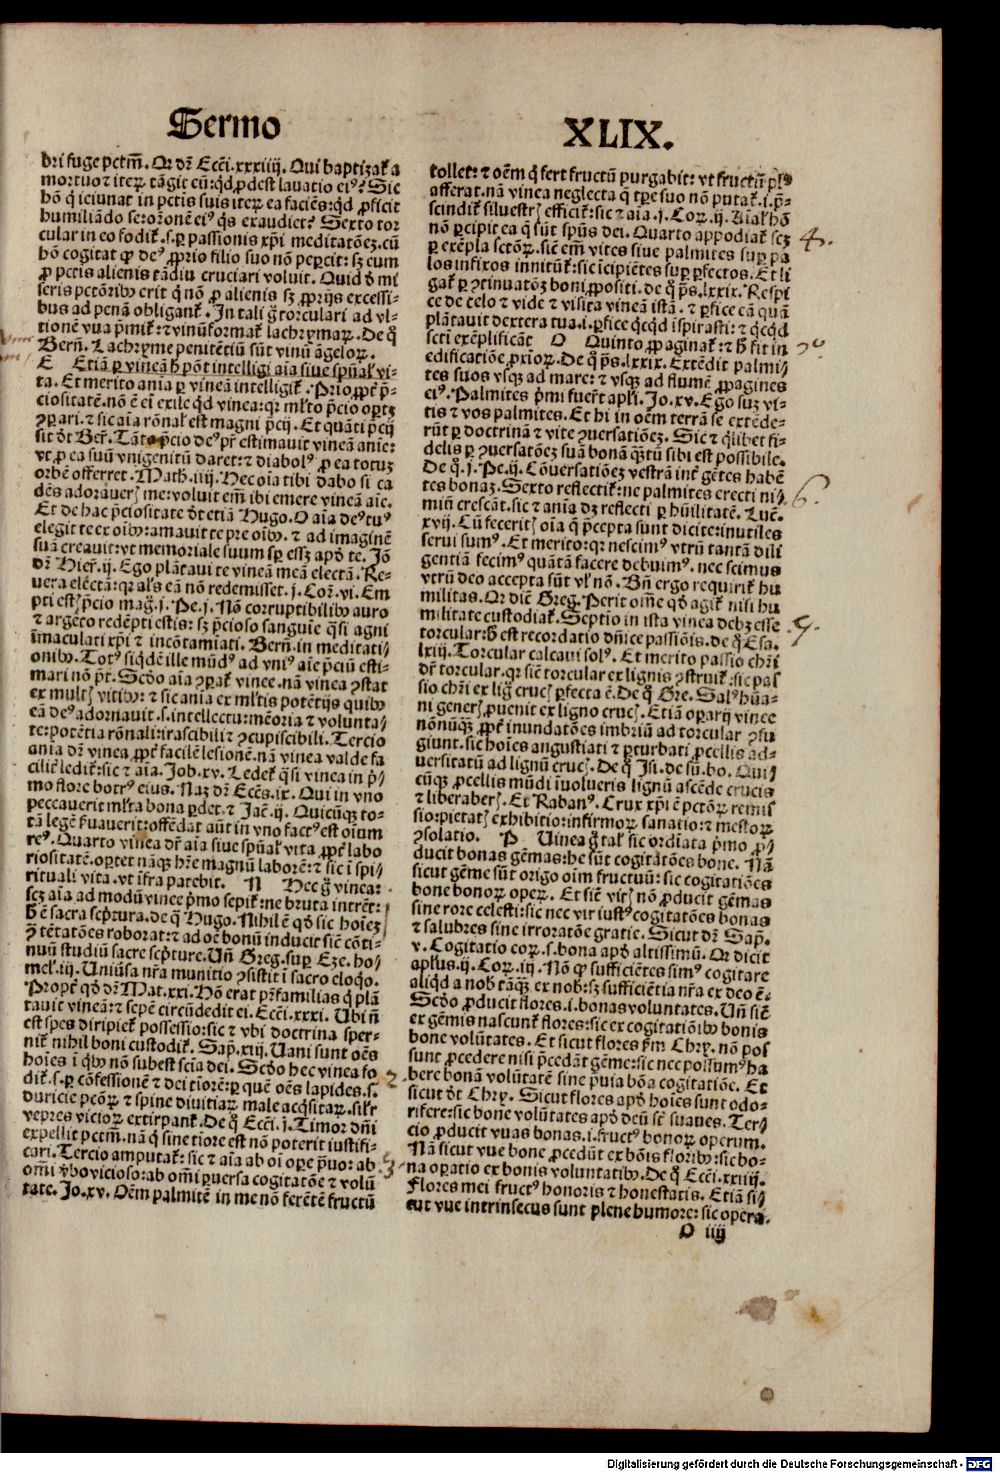 Sermo
XLIX.
bri fuge pctm̄. Or dr̄ Ecci̅.xxxiiij. Qui baptizat̉ a
mortuo ⁊ iteꝝ tāgit eū: qd̛ ꝓdest lauatio ei⁹? Sic
hō q̇ ieiunat in pctis suis iteꝝ ea faciēs: qd̛ ꝓficit
humiliādo se: orōnem ei⁹ q̇s exaudiet? Sexto tor
cular in eo fodit̉.s.ꝑ passionis xp̄i meditatōeꝫ. cū
hō cogitat ꝙ de⁹ ꝓprio filio suo nō peꝑcit: sꝫ eum
ꝓ pctis alienis tādiu cruciari voluit. Quid ḋ mi
seris pctōribꝰ erit q̇ nō ꝓ alienis sꝫ ꝓprijs excessi-
bus ad penā obligant̉. In tali g̊ torculari ad vl-
tionē vua p̄mit̉: ⁊ vinū format̉ lachrymaꝝ. De q̊
Berñ. Lachryme penitētiū sūt vinū āgeloꝝ.
E Etiā ꝑ vineā h̊ pōt intelligi aīa siue spūal̉ vi-
ta. Et merito anīa ꝑ vineā intelligit̉. Prīo ꝓpt̉ p̄-
ciositatē. nō ē ei̅ exile qd̛ vinea: qꝛ ml̉to p̄cio oportꝫ
ꝯꝑari. ⁊ sic aīa rōnal̉ est magni p̄cij. Et quāti p̄cij
sit ḋt Ber̉. Tāto p̄cio de⁹ pr̉ estimauit vineā anīe:
vt ꝓ ea suū vnigenitū daret: ⁊ diabol⁹ ꝓ ea totuꝫ
orbē offerret. Math̉.iiij. Hec oīa tibi dabo si ca
dēs adoraueris me: voluit em̄ ibi emere vineā aīe.
Et de hac p̄ciositate ḋt etiā Hugo. O aīa de⁹ tu⁹
elegit te ex oībꝰ: amauit te p̄ oībꝰ. ⁊ ad imaginē
suā creauit: vt memoriale suum sp̉ esset apd̛ te. Jō
dr̄ Hier̉.ij. Ego plātaui te vineā meā electā. Re-
uera electā: qꝛ al̉s eā nō redemisset. j. Cor̉.vi. Em
pti estis p̄cio mag̉. j. Pe.j. Nō corruptibilibꝰ auro
⁊ argēto redēpti estis: sꝫ p̄cioso sanguīe q̄si agni
īmaculati xp̄i ⁊ incōtamīati. Berñ. in meditati-
onibꝰ. Tot⁹ siqdē ille mūd⁹ ad vni⁹ aīe p̄ciū esti-
mari nō pt̄. Scd̊o aīa ꝯꝑat̉ vinee. nā vinea ꝯstat
ex multis vitibꝰ: ⁊ sic anīa ex ml̉tis potētijs quibꝰ
eā de⁹ adornauit.s. intellectu: memoria ⁊ volunta-
te: potētia rōnali: irascibili ⁊ ꝯcupiscibili. Tercio
anīa dr̄ vinea ꝓpt̉ facilē lesionē. nā vinea valde fa
cilit̉ ledit̉: sic ⁊ aīa. Job.xv. Ledet̉ q̄si vinea in p̄-
mo flore botr⁹ eius. Naꝫ dr̄ Eccs̄.ix. Qui in vno
peccauerit ml̉ta bona ꝑdet. ⁊ Jac̄.ij. Quicūqꝫ to-
tā legē ẜuauerit: offēdat aūt in vno fact⁹ est oīum
re⁹. Quarto vinea dr̄ aīa siue spūal̉ vita ꝓpt̉ labo
riositatē. oportet nāqꝫ hr̄e magnū laborē: ⁊ sic ī spi-
rituali vita. vt īfra patebit. N Hec g̊ vinea:
scꝫ aīa ad modū vinee p̄mo sepit̉: ne bruta intrēt:
h̊ ē sacra sc̄ptura. de q̊ Hugo. Nihil ē qd̛ sic hoīeꝫ
ꝯ̄ tētatōes roborat: ⁊ ad oē bonū inducit sic̄ cōti-
nuū studiū sacre sc̄pture. Uñ Greg. suꝑ Eze. ho-
mel̉.iij. Uniuersa nr̄a munitio ꝯsistit ī sacro eloqo.
Propt̉ qd̛ dr̄ Mat.xxi. Hō erat pr̄familias q̇ plā
tauit vineā: ⁊ sepē circūdedit ei. Ecci̅.xxxi. Ubi nō
est spes diripiet̉ possessio: sic ⁊ vbi doctrina sper-
nit̉ nihil boni custodit̉. Sap̄.xiij. Uani sunt oēs
hoīes ī q̇bꝰ nō subest scīa dei. Scd̊o hec vinea fo
dit̉.s. ꝑ cōfessionē ⁊ dei tiorē: ꝑ quē oēs lapides.s.
duricie pctōꝝ ⁊ spine diuitiaꝝ male acq̇sitaꝝ. sil̉r
vepres vicioꝝ extirpant̉. De q̊ Ecci̅.j. Timor dn̄i
expellit pctm̄. nā q̇ sine tiore est nō poterit iustifi-
cari. Tercio amputat̉: sic ⁊ aīa ab oī oꝑe p̄uo: ab
om̄i v̉bo vicioso: ab om̄i peruersa cogitatōe ⁊ volū
tate. Jo.xv. Oēm palmitē in me nō ferētē fructū
tollet: ⁊ oēm q̇ fert fructū purgabit: vt fructū pl⁹
afferat. nā vinea neglecta q̄ tp̄re suo nō putat̉.i. p̄-
scindit̉ siluestris efficit̉: sic ⁊ aīa. j. Cor.ij. Aīal̉ hō
nō ꝑcipit ea q̄ sūt spūs dei. Quarto appodiat̉ scꝫ
ꝑ exēpla sctōꝝ. sic̄ em̄ vites siue palmites suꝑ pa
los infixos innitūt̉: sic īcipiētes suꝑ ꝑfectos. Et li
gat̉ ꝑ ꝯtinuatōeꝫ boni ꝓpositi. de q̊ p̄s.lxxix. Respi
ce de celo ⁊ vide ⁊ visita vineā istā. ⁊ ꝑfice eā quā
plātauit dextera tua.i. ꝑfice qcqd̛ īspirasti: ⁊ qcqd̛
scti exēplificāt O Quinto ꝓpaginat̉: ⁊ h̊ fit in
edificatiōe ꝓxīoꝝ. De q̊ p̄s.lxxix. Extēdit palmi-
tes suos vsqꝫ ad mare: ⁊ vsqꝫ ad flumē ꝓpagines
ei⁹. Palmites p̄mi fuert̉ apl̉i. Jo.xv. Ego suꝫ vi-
tis ⁊ vos palmites. Et hi in oēm terrā se extēde-
rūt ꝑ doctrinā ⁊ vite ꝯuersatiōeꝫ. Sic ⁊ q̇libet fi-
delis ꝑ ꝯuersatōeꝫ suā bonā qꝫtū sibi est possibile.
De q̊. j. Pe.ij. Cōuersatiōeꝫ vestrā int̉ gētes habē
tes bonaꝫ. Sexto reflectit̉: ne palmites erecti ni-
miū crescāt. sic ⁊ anīa dꝫ reflecti ꝑ hūilitatē. Luc̄.
xvij. Cū feceritis oīa q̄ p̄cepta sunt dicite: inutiles
serui sum⁹. Et merito: qꝛ nescim⁹ vtrū tantā dili
gentiā fecim⁹ quātā facere debuim⁹. nec scimus
vtrū deo accepta sūt vl̉ nō. Bn̄ ergo requirit̉ hu
militas. Or dic̄ Greg. Perit om̄e qd̛ agit̉ nisi hu
militate custodiat̉. Septīo in ista vinea debꝫ esse
torcular: h̊ est recordatio dn̄ice passiōis. de q̊ Esa.
lxiij. Torcular calcaui sol⁹. Et merito passio chr̄i
dr̄ torcular. qꝛ sic̄ torcular ex lignis ꝯstruit̉: sic pas
sio chr̄i ex lig̊ crucis ꝑfecta ē. De q̊ Gre. Sal⁹ hūa-
ni generis ꝓuenit ex ligno crucis. Etiā oꝑarij vinee
nōnūqꝫ ꝓpt̉ inundatōes imbriū ad torcular ꝯfu
giunt. sic hoīes angustiati ⁊ ꝑturbati ꝓcellis ad-
uersitatū ad lignū crucis. De q̊ Jsi. de sū. bo. Qui-
cūqꝫ ꝓcellis mūdi īuolueris lignū ascēde crucis
⁊ liberaberis. Et Raban⁹. Crux xp̄i ē pctōꝝ remis
sio: pietatis exhibitio: infirmoꝝ sanatio: ⁊ mestoꝝ
ꝯsolatio. P Uinea g̊ tal̉ sic ordīata p̄mo ꝓ-
ducit bonas gēmas: he sūt cogitatōes bone. Nā
sicut gēme sūt origo oīm fructuū: sic cogitatiōes
bone bonoꝝ operꝝ. Et sic̄ vitis nō ꝓducit gēmas
sine rore celesti: sic nec vir iust⁹ cogitatōes bonas
⁊ salubres sine irroratōe gratie. Sicut dr̄ Sap̄.
v. Cogitatio eoꝝ.s. bona apd̛ altissimū. Or dicit
apl̉us.ij. Cor.iij. Nō ꝙ sufficiētes sim⁹ cogitare
aliqd̛ a nob̉ tāqꝫ ex nob̉: sꝫ sufficiētia nr̄a ex deo ē.
Scd̊o ꝓducit flores.i. bonas volūtates. Uñ sic̄
ex gēmis nascunt̉ flores: sic ex cogitatiōibꝰ bonis
bone volūtates. Et sicut flores p̄m Chry. nō pos
sunt ꝓcedere nisi p̄cedāt gēme: sic nec possum⁹ ha
bere bonā volūtatē sine p̄uia bōa cogitatiōe. Et
sicut ḋt Chry. Sicut flores apd̛ hoīes sunt odo-
rifere: sic bone volūtates apd̛ deū st̄ suaues. Ter-
cio ꝓducit vuas bonas.i. fruct⁹ bonoꝝ operum.
Nā sicut vue bone ꝓcedūt ex bōis floribꝰ: sic bo-
na oꝑatio ex bonis voluntatibꝰ. De q̊ Ecci̅.xxiiij.
Flores mei fruct⁹ honoris ⁊ honestatis. Etiā si-
cut vue intrinsecus sunt plene humore: sic opera.
O iiij
2
3
4.
5º
6.
7.
Digitalisierung gefördert durch die Deutsche Forschungsgemeinschaft - DFG